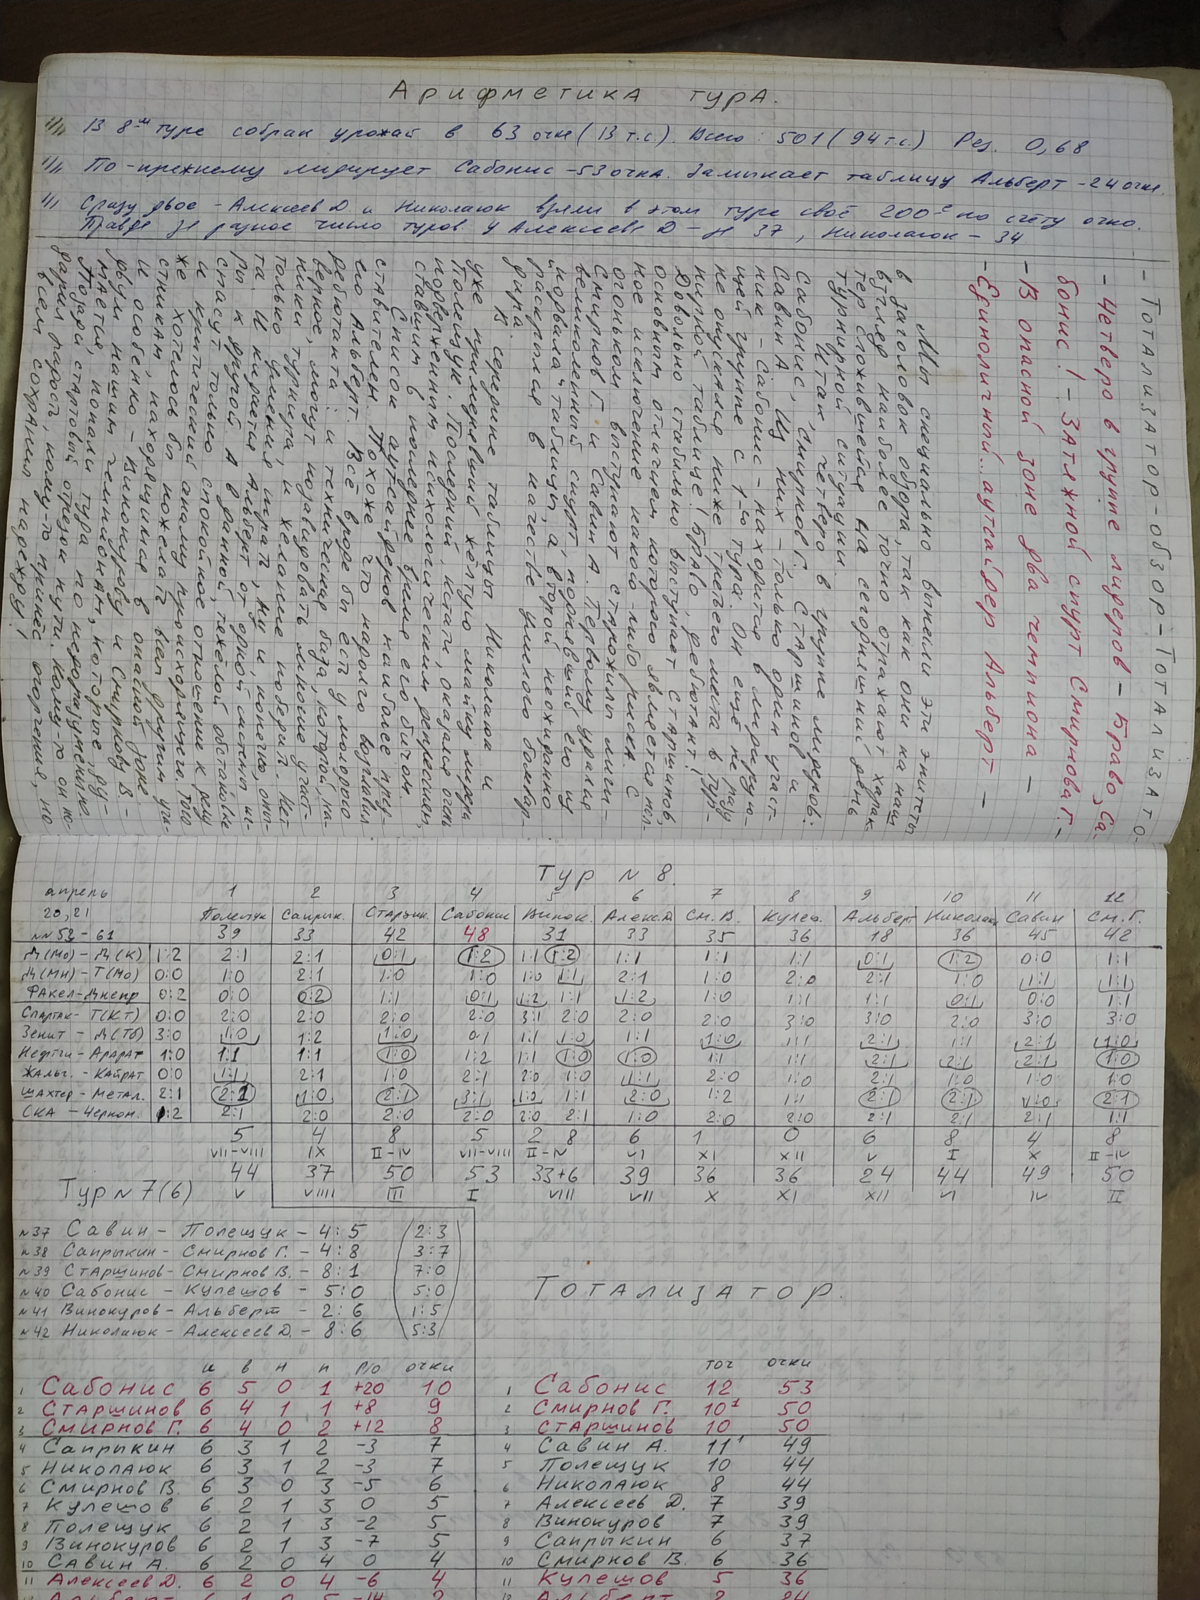 Арифметика тура.
В 8-м туре собран урожай в 63 очка (13 т.с.). Всего: 501 (94 т.с.) Рез. 0,68
По-прежнему лидирует Сабонис - 53 очка. Замыкает таблицу Альберт - 24 очка.
Сразу двое - Алексеев Д и Николаюк взяли в этом туре своё 200-е по счёту очко.
Правда за разное число туров у Алексеева Д - 37, Николаюк - 34
- Тотализатор - обзор - Тотализато-
- Четверо в группе лидеров - Браво, Са-
бонис! - Затяжной спурт Смирнова Г. -
- В опасной зоне два чемпиона -
- Единоличный... аутсайдер Альберт -
Мы специально вынесли эти эпитеты
в заголовок обзора, так как они на наш
взгляд наиболее точно отражают харак-
тер сложившейся на сегодняшний день
турнирной ситуации.
Итак, четверо в группе лидеров:
Сабонис, Смирнов Г., Старшинов и
Савин А. Из них - только один участ-
ник - Сабонис - находится в лидирую-
щей группе с 1-го тура. Он ещё ни разу
не опускался ниже третьего места в тур-
нирной таблице! Браво, дебютант!
Довольно стабильно выступает Старшинов,
основным отличием которого является пол-
ное исключение какого-либо риска. С
огоньком выступают старожилы лиги -
Смирнов Г. и Савин А. Первому удался
великолепный спурт, поднявший его из
"подвала" таблицы, а второй неожиданно
раскрылся в качестве умелого бомбар-
дира.
В середине таблицы Николаюк и
уже примерявший жёлтую майку лидера
Полещук. Последний, кстати, оказался очень
подверженным психологическим депрессиям,
ставшим в последнее время его бичом.
Список аутсайдеров наиболее пред-
ставителен. Похоже что надолго возглавил
его Альберт. Всё вроде бы есть у молодого
дебютанта: и техническая база, которой, на-
верное, могут позавидовать многие участ-
ники турнира, и желание победить. Нет
только умения играть, ну и, конечно, опы-
та. И кидается Альберт от одной систе-
мы к другой. А в данной тяжёлой обстановке
спасут только спокойное отношение к делу
и критический анализ происходящего. Того
же хотелось бы пожелать двум другим уча-
стникам, находящимся в опасной зоне
и особенно - Винокурову и Смирнову В. -
двум нашим чемпионам, которые, ду-
мается, попали туда по недоразумению.
Позади стартовый отрезок пути. Кому-то он по-
дарил радость, кому-то принёс огорчения, но
всем сохранил надежду!
Тур № 8.
апрель 1 2 3 4 5 6 7 8 9 10 11 12
20,21 Полещук Сапрык. Старшин. Сабонис Винок. Алекс Д См. В. Кулеш. Альберт Николаюк Савин См. Г.
№№ 53-61 39 33 42 48 31 33 35 36 18 36 45 42
Д(Мо) - Д(К) 1:2 2:1 2:1 0:1 1:2 1:1 1:2 1:1 1:1 1:1 0:1 1:2 0:0 1:1
Д(Мн) - Т(Мо) 0:0 1:0 2:1 1:0 1:0 1:0 1:1 2:1 1:0 2:0 2:1 1:0 1:1 1:1
Факел - Днепр 0:2 0:0 0:2 1:1 0:1 1:2 1:1 1:2 1:0 1:1 1:1 0:1 0:0 1:1
Спартак - Т(КТ) 0:0 2:0 2:0 2:0 2:0 3:1 2:0 2:0 2:0 3:0 3:0 2:0 3:0 3:0
Зенит - Д(Тб) 3:0 1:0 1:2 1:0 0:1 1:1 1:0 1:1 1:0 1:1 2:1 1:1 2:1 1:0
Нефтчи - Арарат 1:0 1:1 1:1 1:0 1:2 1:1 1:0 1:0 1:1 1:1 2:1 2:1 2:1 1:0
Жальг. - Кайрат 0:0 1:1 2:1 1:0 2:1 2:0 1:0 1:1 2:0 1:0 2:1 1:0 1:0 1:0
Шахтер - Метал. 2:1 2:1 1:0 2:1 3:1 1:0 1:1 2:0 1:2 1:1 2:1 2:1 1:0 2:1
СКА - Черном. 1:2 2:1 2:0 2:0 2:0 2:0 2:1 1:0 2:0 2:0 2:1 2:1 2:1 1:1
5 4 8 5 2 8 6 1 0 6 8 4 8
VII-VIII IX II-IV VII-VIII II-IV VI XI XII V I X II-IV
44 37 50 53 33+6 39 36 36 24 44 49 50
V VIIII III I VIII VII X XI XII VI IV II
Тур № 7 (6)
№37 Савин - Полещук - 4:5 (2:3)
№38 Сапрыкин - Смирнов Г. - 4:8 3:7
№39 Старшинов - Смирнов В. - 8:1 7:0
№40 Сабонис - Кулешов - 5:0 5:0
№41 Винокуров - Альберт - 2:6 1:5
№42 Николаюк - Алексеев Д. - 8:6 5:3
и в н п р/о очки
1 Сабонис 6 5 0 1 +20 10
2 Старшинов 6 4 1 1 +8 9
3 Смирнов Г. 6 4 0 2 +12 8
4 Сапрыкин 6 3 1 2 -3 7
5 Николаюк 6 3 1 2 -3 7
6 Смирнов В. 6 3 0 3 -5 6
7 Кулешов 6 2 1 3 0 5
8 Полещук 6 2 1 3 -2 5
9 Винокуров 6 2 1 3 -7 5
10 Савин А. 6 2 0 4 0 4
11 Алексеев Д. 6 2 0 4 -6 4
Тотализатор.
точ очки
1 Сабонис 12 53
2 Смирнов Г. 10¹ 50
3 Старшинов 10 50
4 Савин А. 11' 49
5 Полещук 10 44
6 Николаюк 8 44
7 Алексеев Д. 7 39
8 Винокуров 7 39
9 Сапрыкин 6 37
10 Смирнов В. 6 36
11 Кулешов 5 36